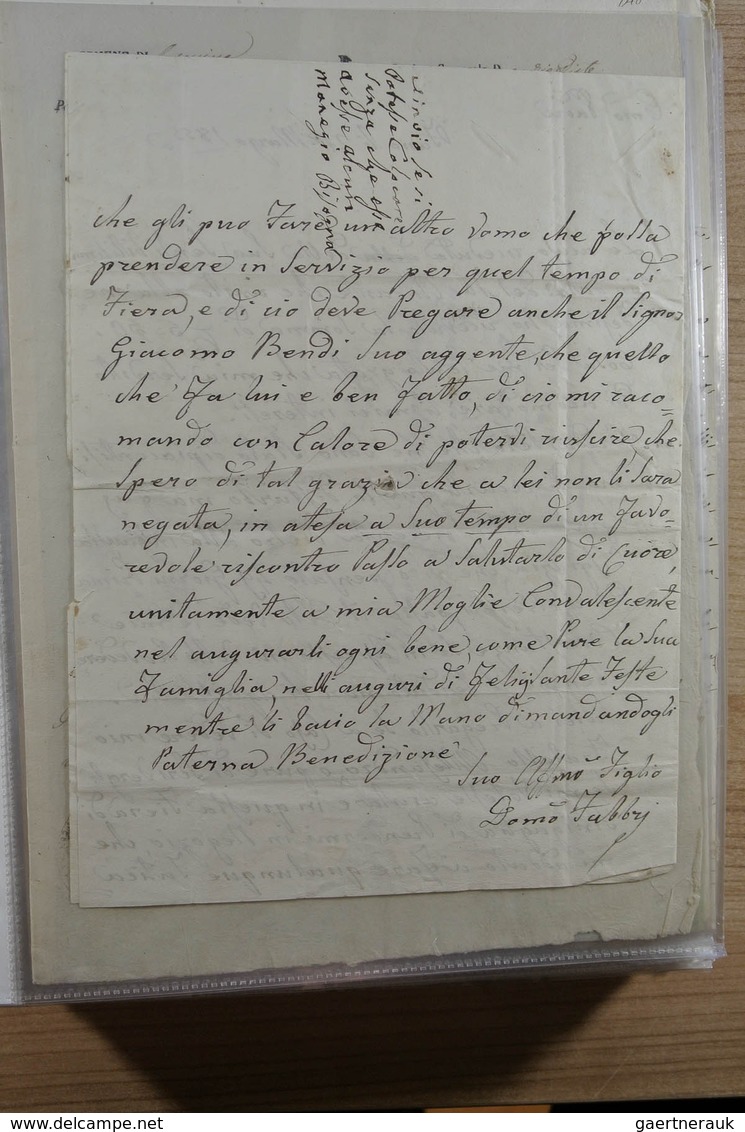 senza che
avesse alcun
Manegio Bisogna
che gli puo Fare un altro Vomo che possa
prendere in Servizio per quel tempo di
Fiera, e di cio deve Pregare anche il Signor
Giacomo Bendi Suo aggente, che quello
che Fa lui e ben Fatto, di cio mi raco=
mando con Calore di poterdi riuscire, che
Spero di tal grazia che a lei non li Sara
negata, in atesa a Suo tempo di un Favo=
revole riscontro Passo a Salutarlo di Cuore,
unitamente a mia Moglie Convalescente
nel augurarli ogni bene, come Pure la Sua
Famiglia, nelli auguri di Feste
mentre li bacio la Mano dimandandogli
Paterna Benedizione
Suo Affmo Figlio
Domo Fabbri
gaertnerauk